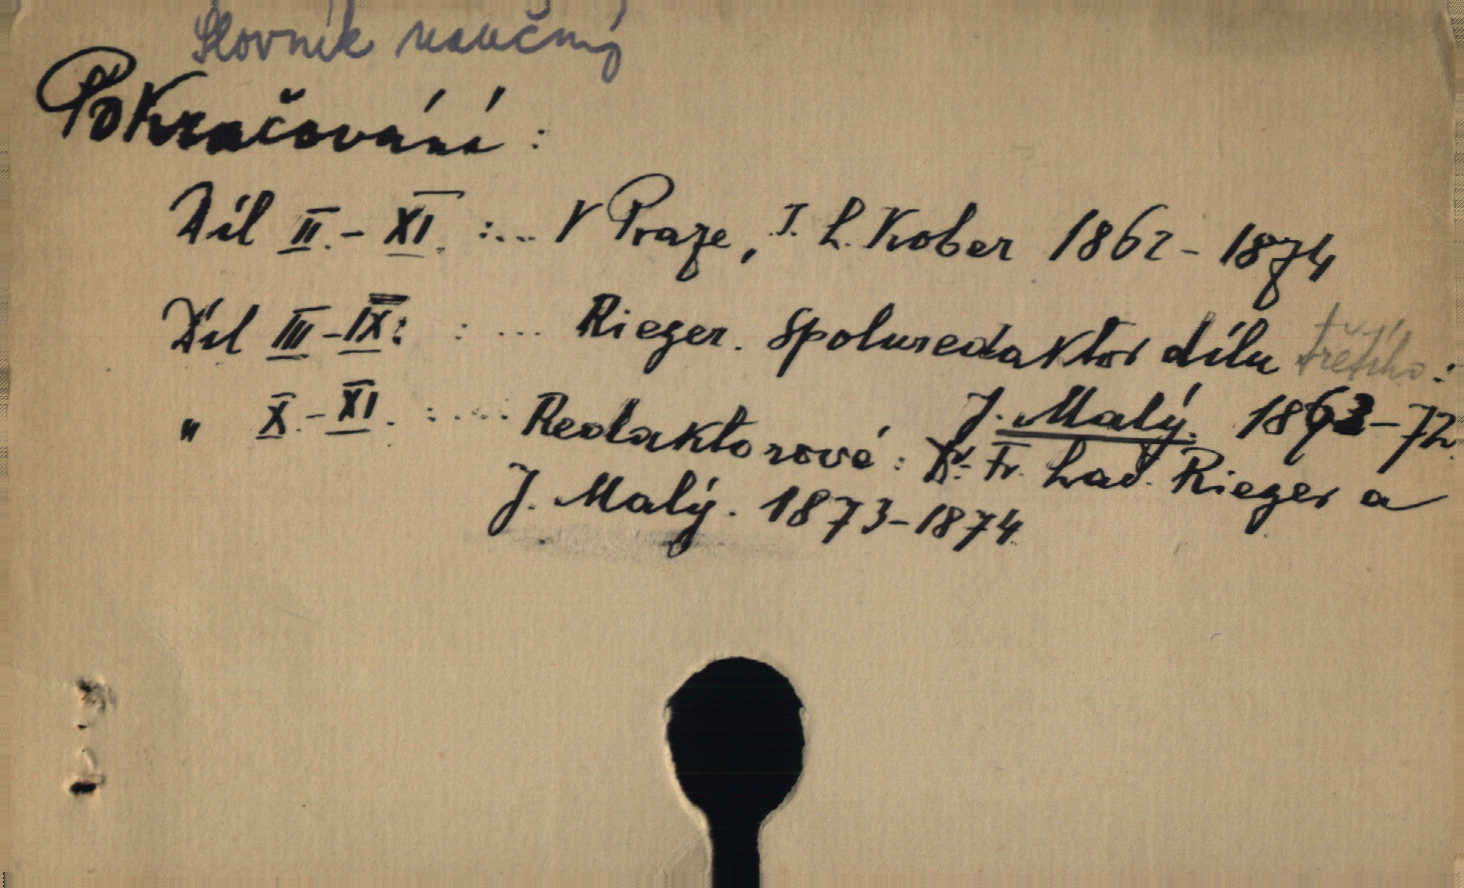 Slovník naučný
Pokračování :
Díl II. - XI. :... V Praze, I. L. Kober 1862 - 1874
Díl III - IX : : ... Rieger. Spoluredaktor dílu třetího :
J. Malý. 1863-72.
„ X. - XI. : .... Redaktorové : Dr. Fr. Lad. Rieger a
J. Malý. 1873-1874